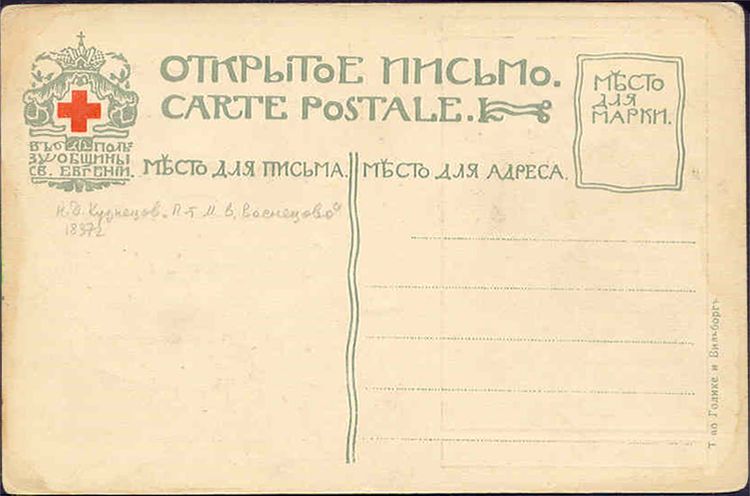 ОТКРЫТОЕ ПИСЬМО.
CARTE POSTALE.
МѢСТО
ДЛЯ
МАРКИ.
ВЪ ПОЛЬ
ЗУ ОБЩИНЫ
СВ. ЕВГЕНІИ.
МѢСТО ДЛЯ ПИСЬМА.
МѢСТО ДЛЯ АДРЕСА.
Н. Д. Кузнецов. П-т М. В. Васнецова
Т-во Голике и Вильборгъ.